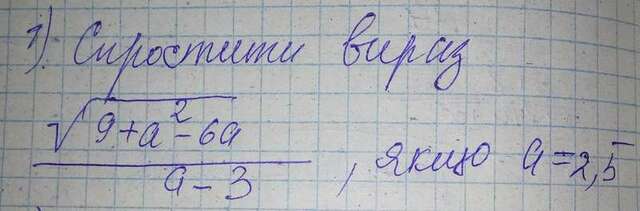 1) Спростити вираз
√9+a²-6a
a-3 , якщо a=2,5